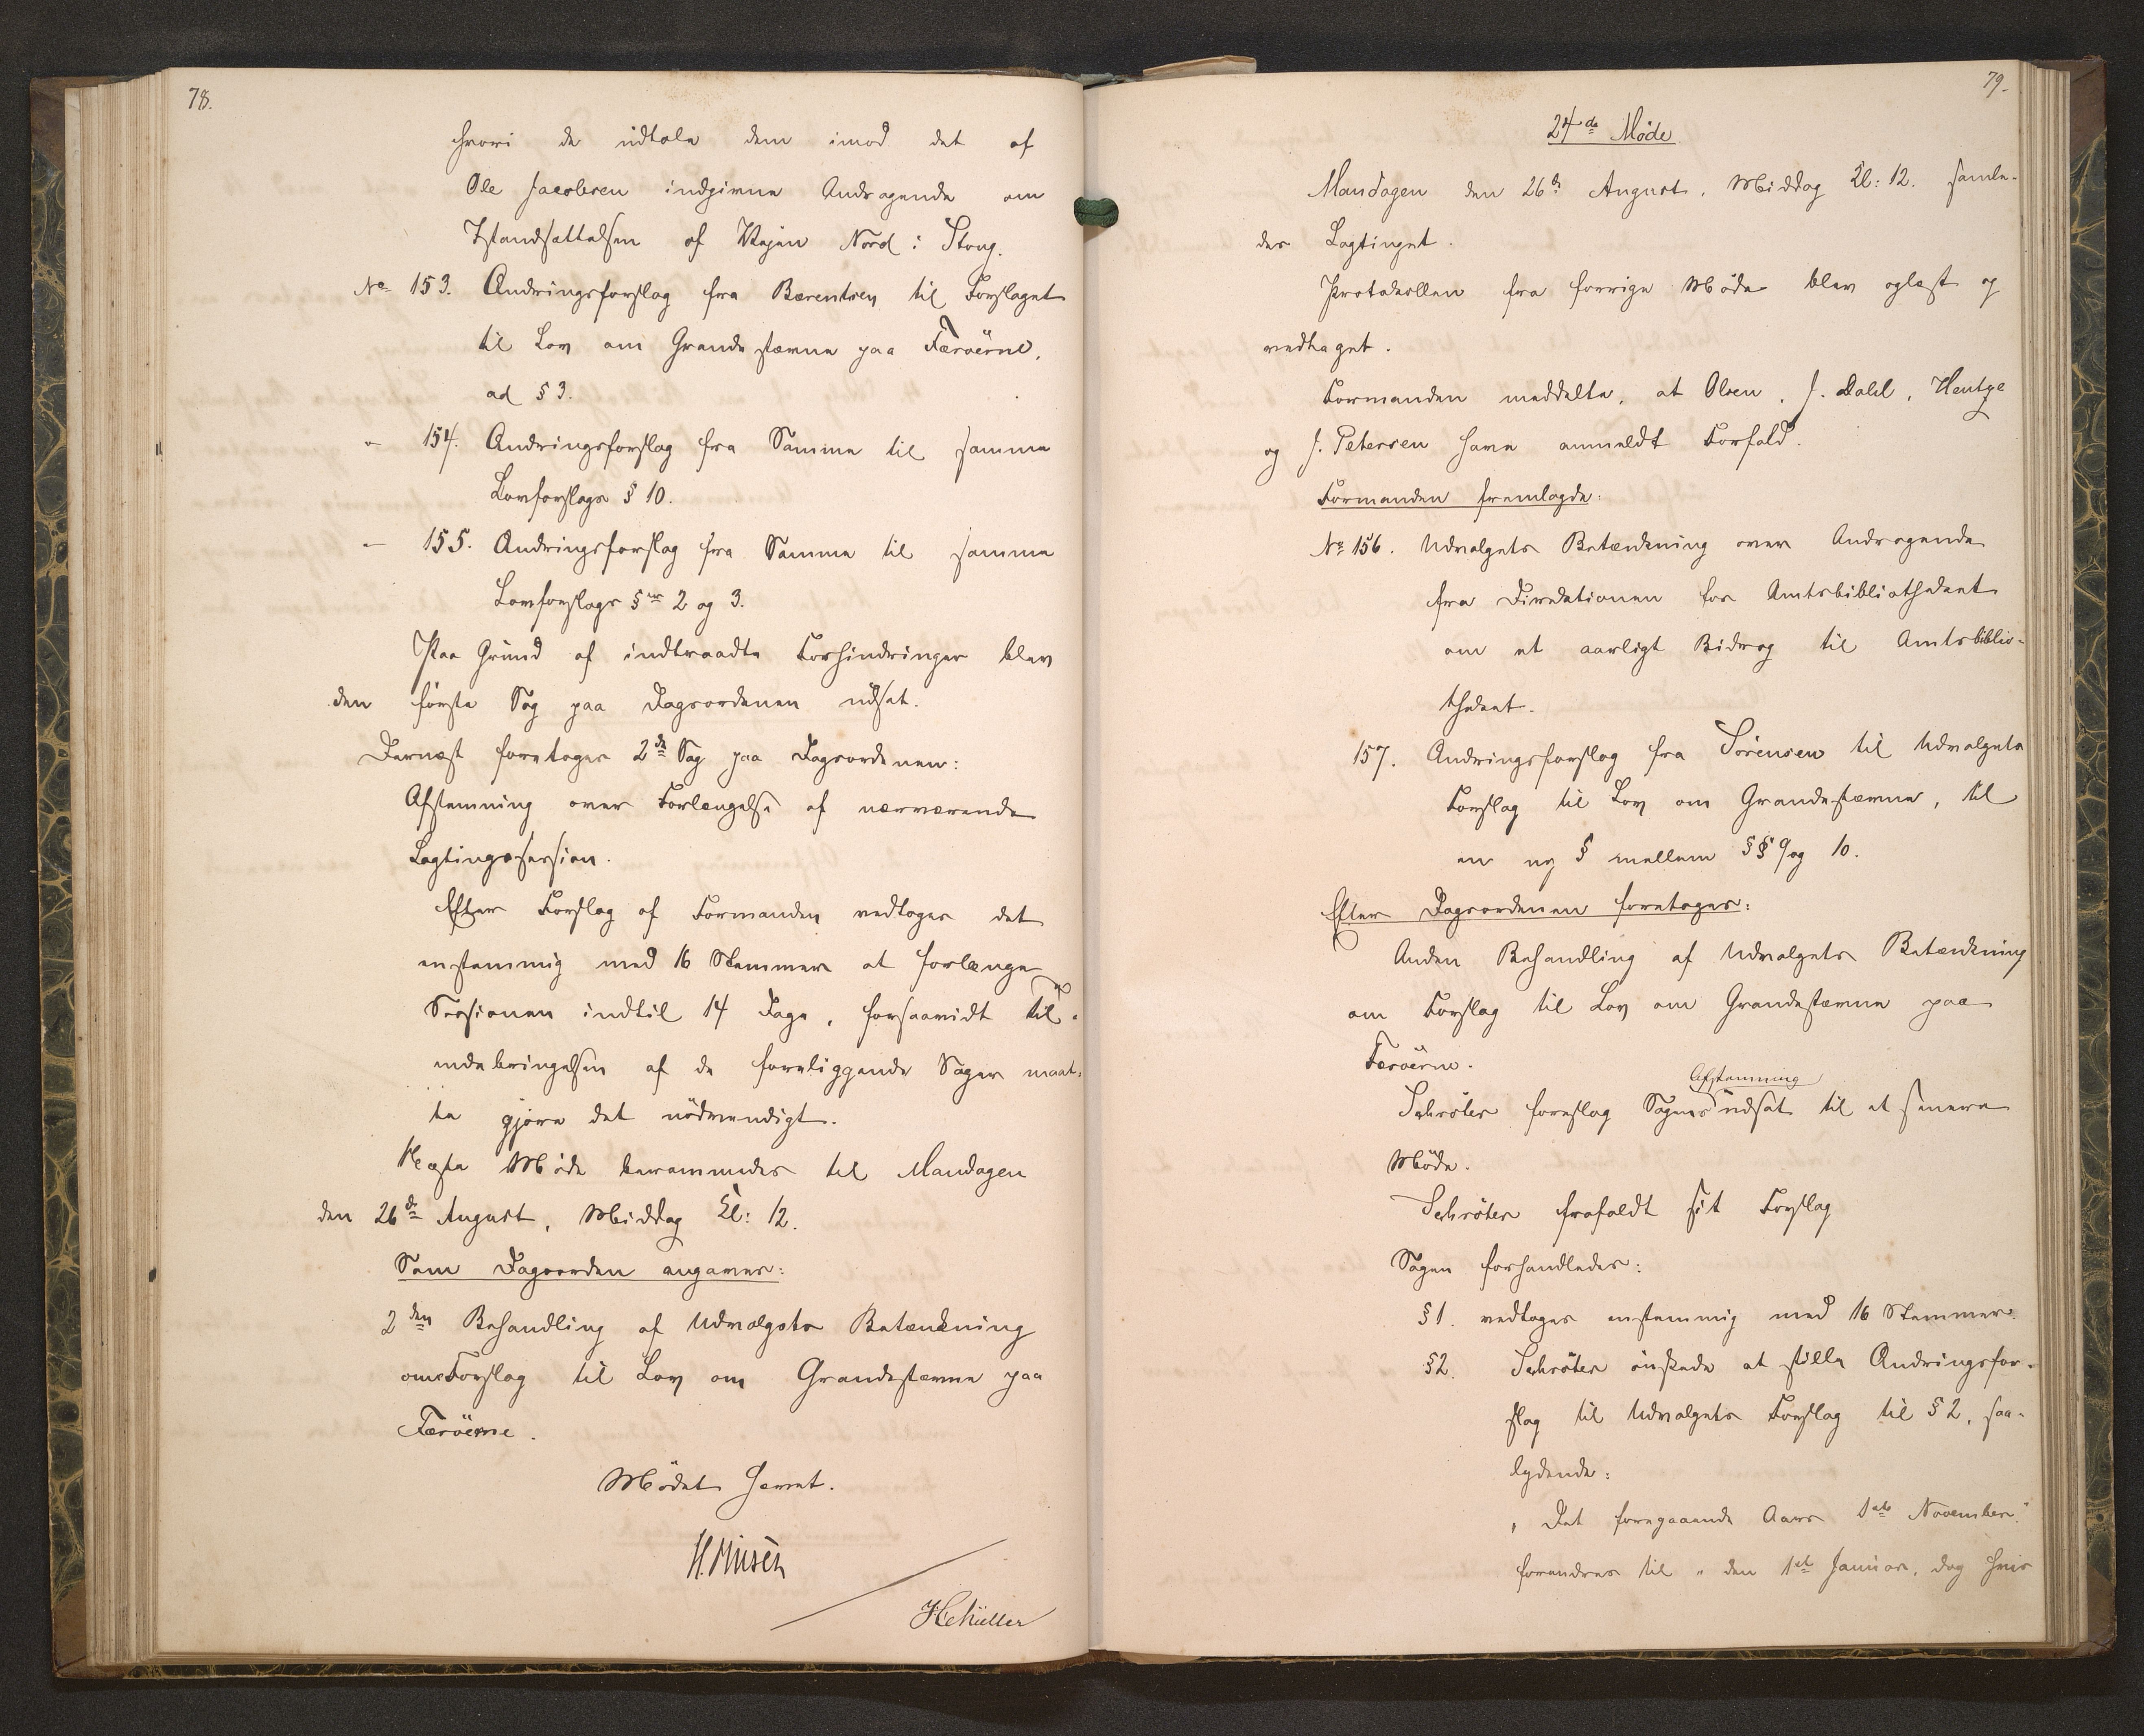 78.
hvori de udtale dem imod det af
Ole Jacobsen indgivne Andragende om
Istandsættelsen af Vejen Nord i Stong.
No 153. Ændringsforslag fra Bærentsen til Forslaget
til Lov om Grandestævne paa Færøerne,
ad § 3.
" 154. Ændringsforslag fra Samme til samme
Lovforslags § 10.
" 155. Ændringsforslag fra Samme til samme
Lovforslags §er 2 og 3.
Paa Grund af indtraadte Forhindringer blev
den første Sag paa Dagsordenen udsat.
Dernæst foretoges 2de Sag paa Dagsordenen:
Afstemning over Forlængelse af nærværende
Lagtingssession.
Efter Forslag af Formanden vedtoges det
enstemmig med 16 Stemmer at forlænge
Sessionen indtil 14 Dage, forsaavidt til-
endebringelsen af de foreliggende Sager maat-
te gjøre det nødvendigt.
Næste Møde berammedes til Mandagen
den 26de August, Middag Kl: 12.
Som Dagsorden angaves:
2den Behandling af Udvalgets Betænkning
om Forslag til Lov om Grandestævne paa
Færöerne.
Mødet hævet.
H. Müller
79.
24de Møde
Mandagen den 26de August, Middag Kl: 12. samle-
des Lagtinget.
Protokollen fra forrige Møde blev oplæst og
vedtaget.
Formanden meddelte, at Olsen, J. Dahl, Hentze
og J. Petersen have anmeldt Forfald.
Formanden fremlagde:
No 156. Udvalgets Betænkning over Andragende
fra Direktionen for Amtsbibliotheket
om et aarligt Bidrag til Amtsbiblio-
theket.
157. Ændringsforslag fra Sörensen til Udvalgets
Forslag til Lov om Grandestævne, til
en ny § mellem §§ 9 og 10.
Efter Dagsordenen foretoges:
Anden Behandling af Udvalgets Betænkning
om Forslag til Lov om Grandestævne paa
Færöerne.
Afstemning
Schröter foreslog Sagens udsat til et senere
Møde.
Schröter frafaldt sit Forslag
Sagen forhandledes:
§ 1. vedtoges enstemmig med 16 Stemmer.
§ 2. Schröter önskede at stille Ændringsfor-
slag til Udvalgets Forslag til § 2, saa-
lydende:
" Det foregaaende Aars 1ste November"
forandres til " den 1ste Januar, dog hvis